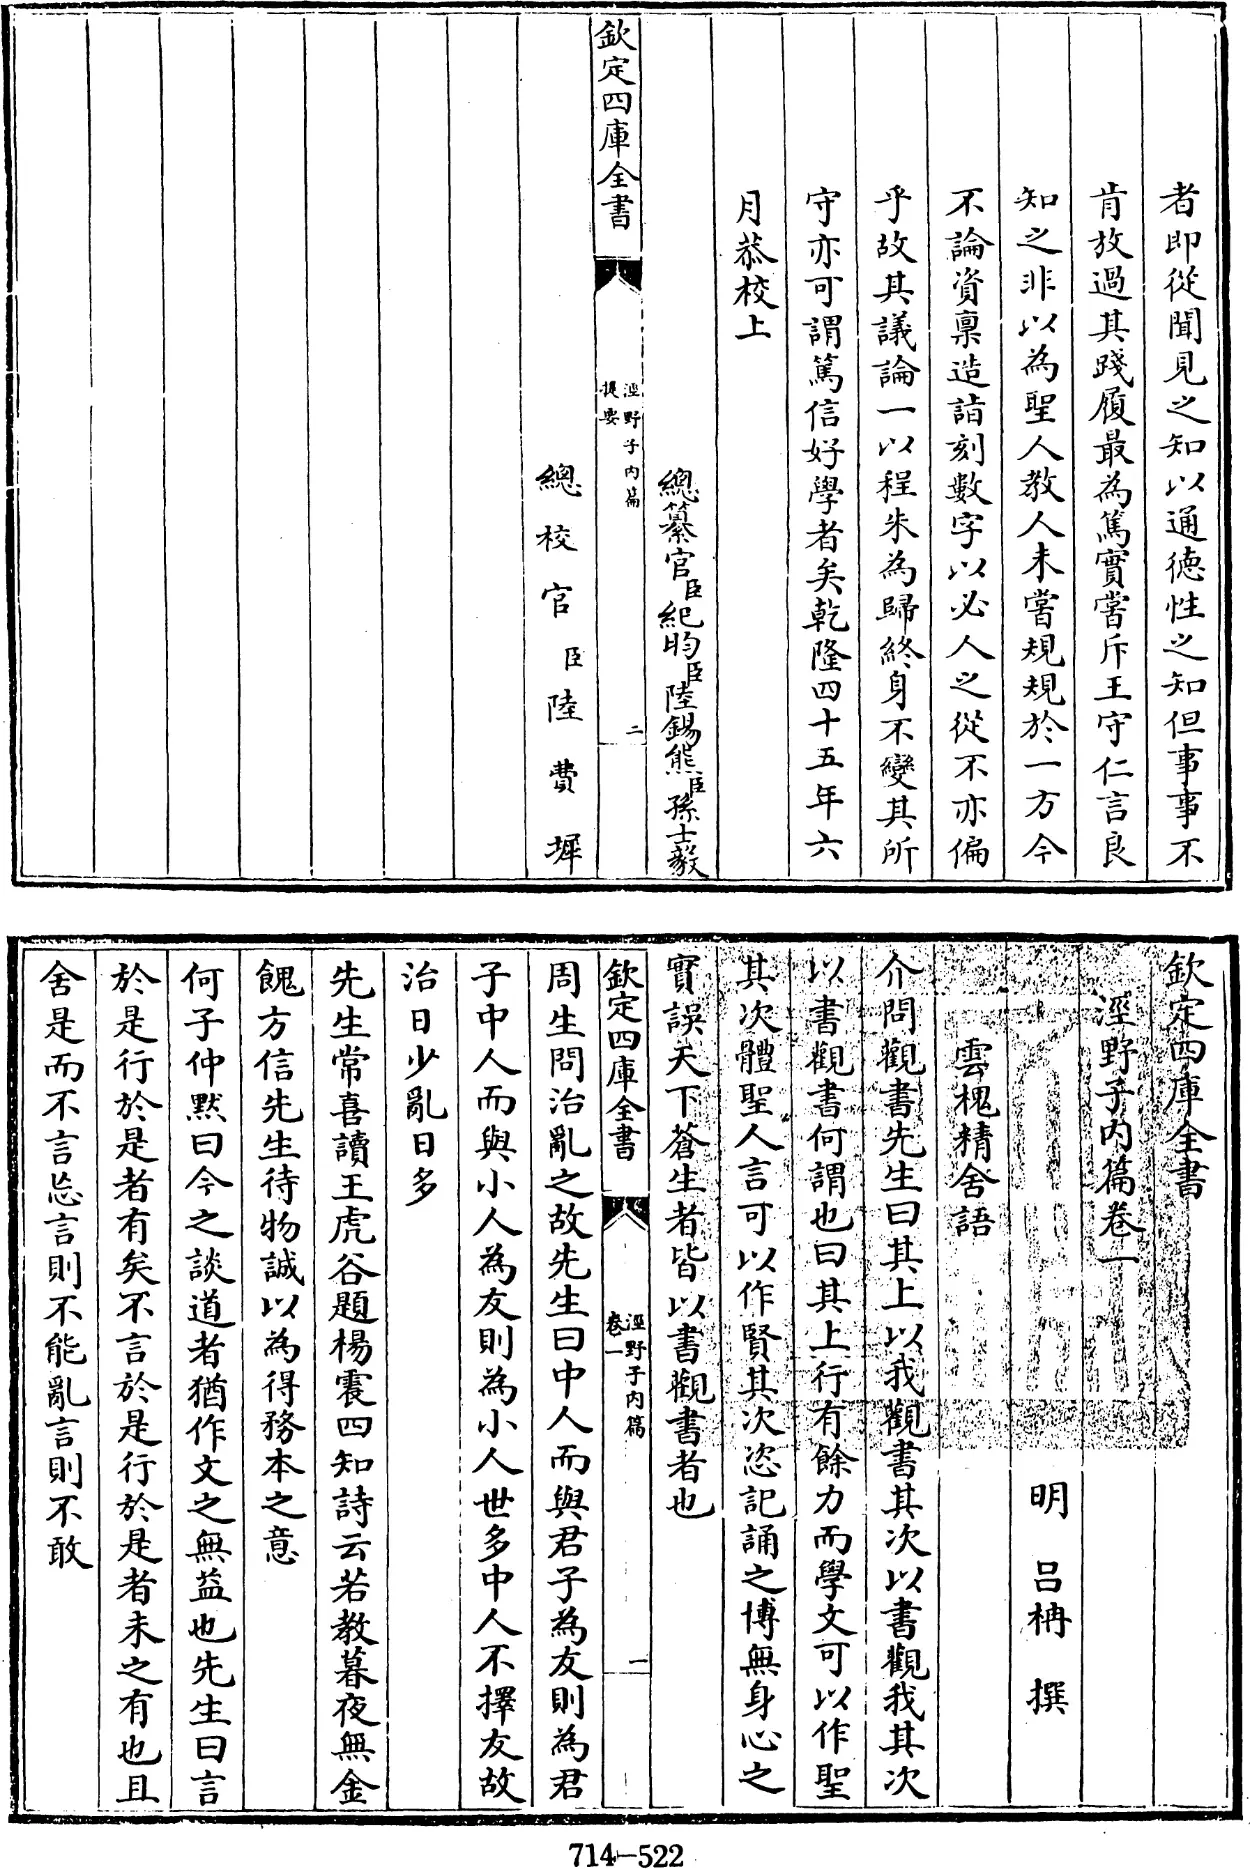 者即從聞見之知以通德性之知但事事不
肯放過其踐履最為篤實嘗斥王守仁言良
知之非以為聖人教人未嘗規規於一方今
不論資稟造詣刻數字以必人之從不亦偏
乎故其議論一以程朱為歸終身不變其所
守亦可謂篤信好學者矣乾隆四十五年六
月恭校上
總纂官臣紀昀臣陸錫熊臣孫士毅
欽定四庫全書
涇野子內篇
提要
二
總校官臣陸費墀
欽定四庫全書
涇野子內篇卷一
明 呂柟 撰
雲槐精舍語
介問觀書先生曰其上以我觀書其次以書觀我其次
以書觀書何謂也曰其上行有餘力而學文可以作聖
其次體聖人言可以作賢其次恣記誦之博無身心之
實誤天下蒼生者皆以書觀書者也
欽定四庫全書
涇野子內篇
卷一
一
周生問治亂之故先生曰中人而與君子為友則為君
子中人而與小人為友則為小人世多中人不擇友故
治日少亂日多
先生常喜讀王虎谷題楊震四知詩云若教暮夜無金
餽方信先生待物誠以為得務本之意
何子仲默曰今之談道者猶作文之無益也先生曰言
於是行於是者有矣不言於是行於是者未之有也且
舍是而不言忘言則不能亂言則不敢
714-522